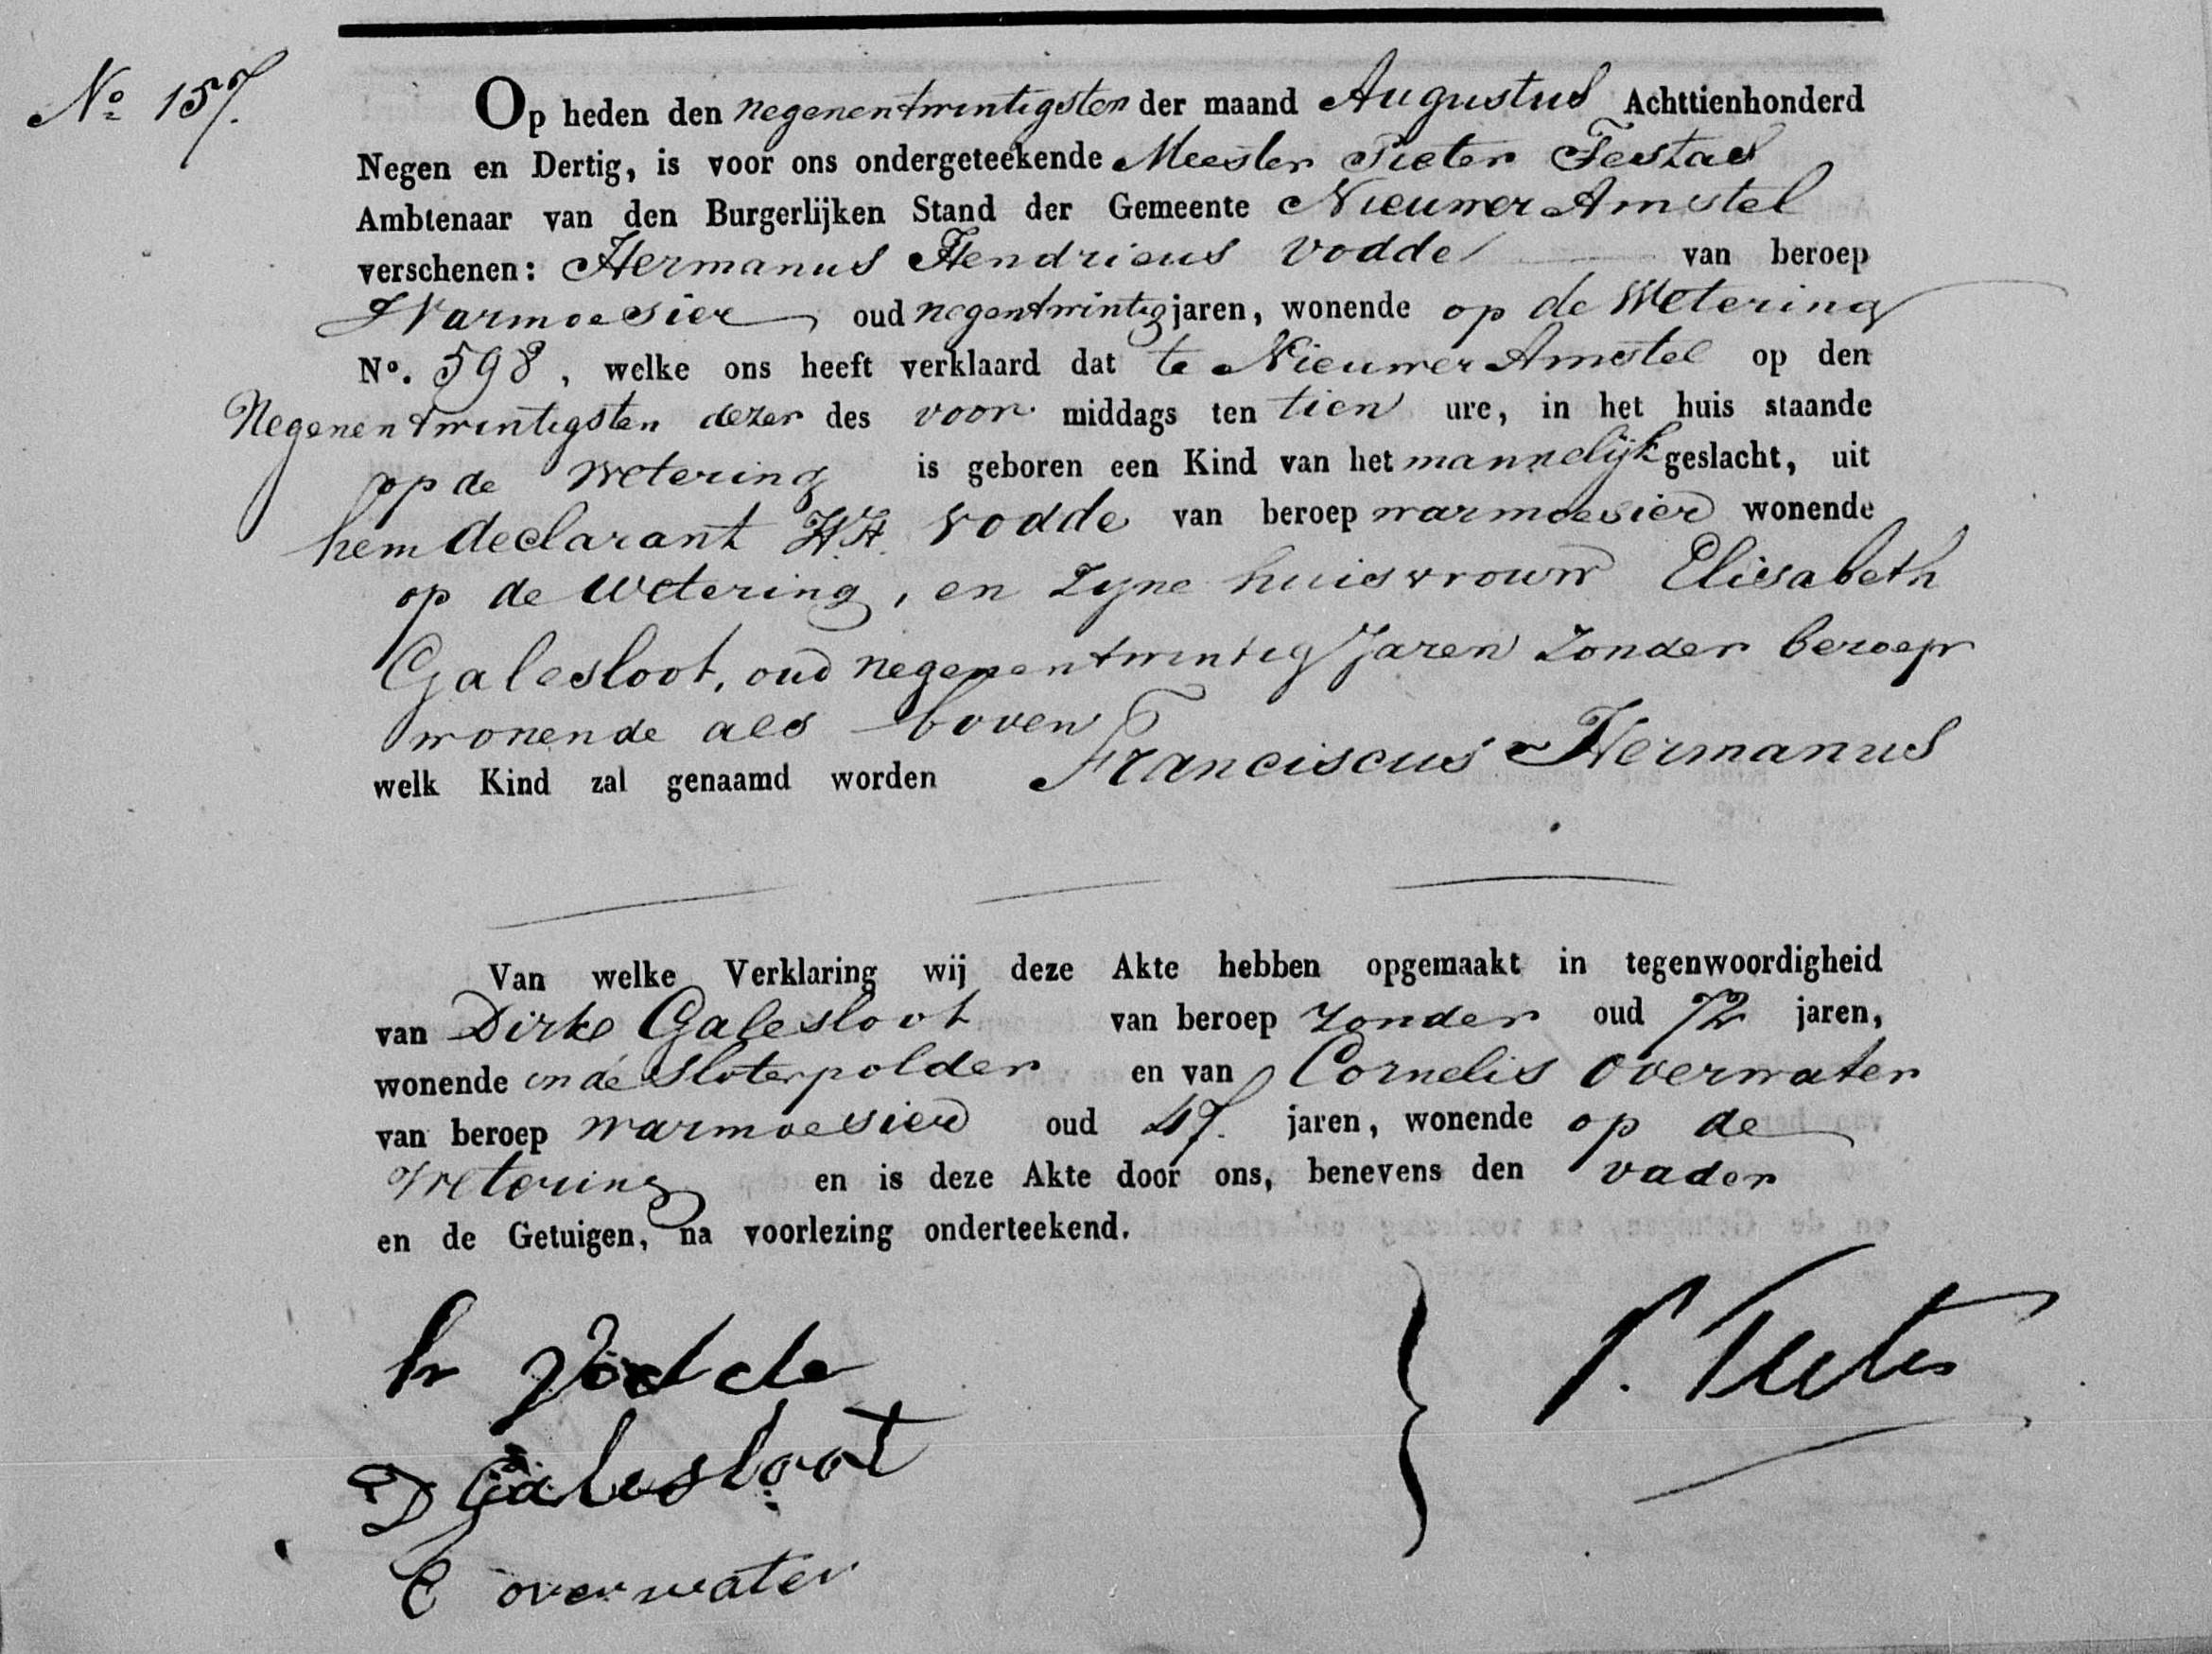 No 157.
Op heden den negenentwintigsten der maand Augustus Achttienhonderd
Negen en Dertig, is voor ons ondergeteekende Meester Pieter Testas
Ambtenaar van den Burgerlijken Stand der Gemeente Nieuwer Amstel
verschenen: Hermanus Hendricus Vodde van beroep
Warmoesier oud negentwintig jaren, wonende op de Wetering
No. 598, welke ons heeft verklaard dat te Nieuwer Amstel op den
Negenentwintigsten dezer des voor middags ten tien ure, in het huis staande
op de Wetering is geboren een Kind van het mannelijk geslacht, uit
hem declarant H.H. Vodde van beroep warmoesier wonende
op de Wetering, en zyne huisvrouw Elisabeth
Galesloot, oud negenentwintig Jaren zonder beroep
wonende als boven
welk Kind zal genaamd worden Franciscus Hermanus
Van welke Verklaring wij deze Akte hebben opgemaakt in tegenwoordigheid
van Dirk Galesloot van beroep zonder oud 72 jaren,
wonende in de Sloterpolder en van Cornelis Overwater
van beroep warmoesier oud 47. jaren, wonende op de
Wetering en is deze Akte door ons, benevens den vader
en de Getuigen, na voorlezing onderteekend.
h Vodde
P. Testas
D Galesloot
C overwater